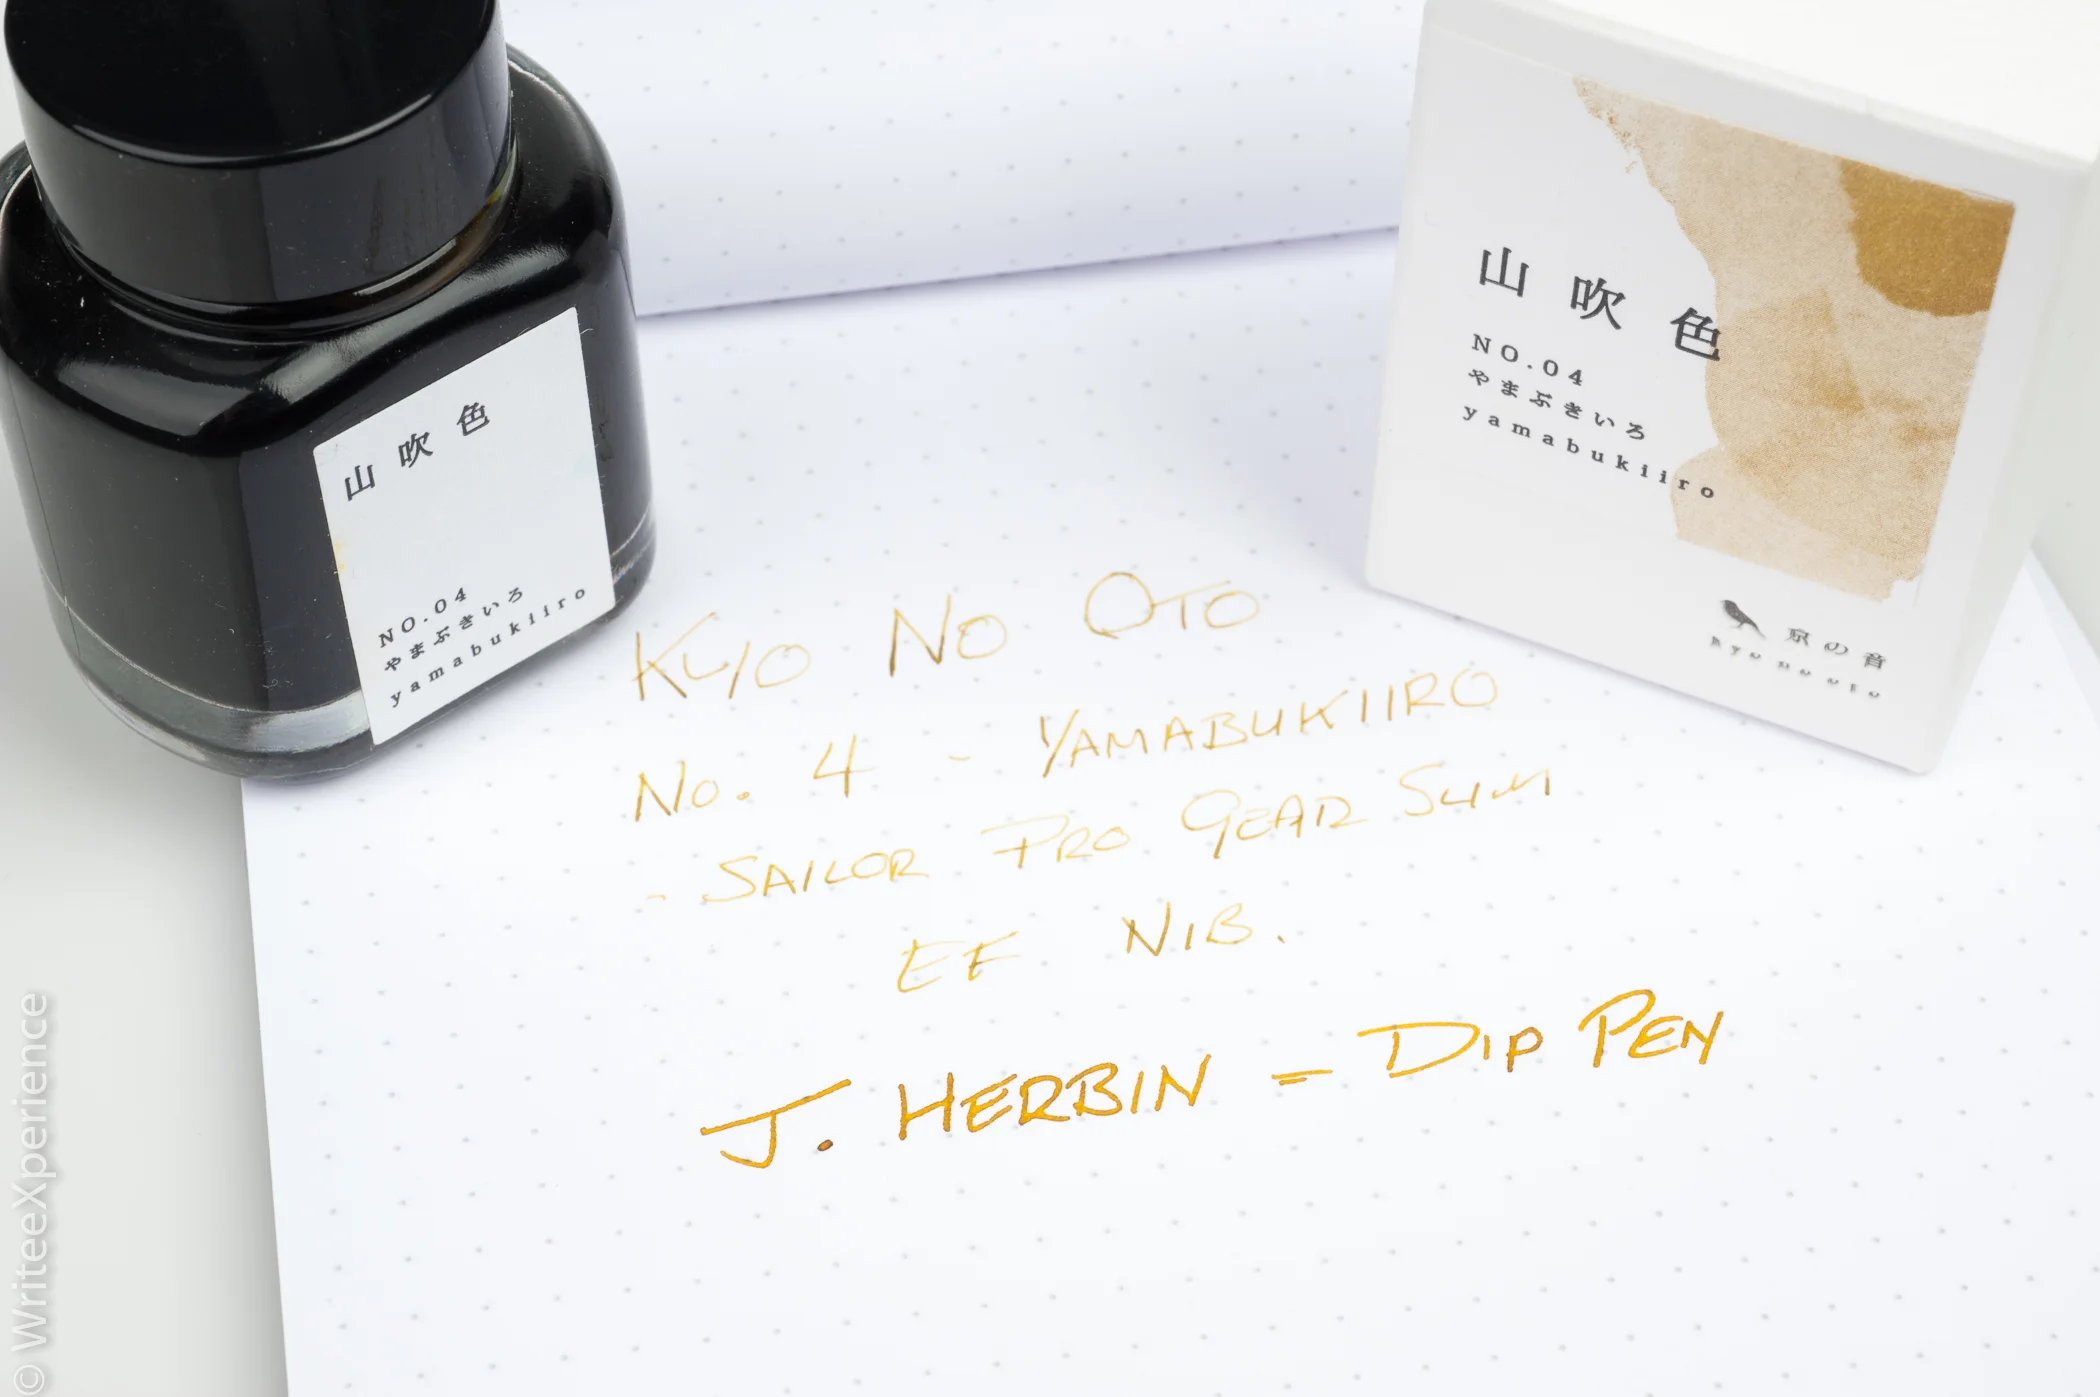 山吹色
NO.04
やまぶきいろ
yamabukiiro
山吹色
NO.04
やまぶきいろ
yamabukiiro
京の音
kyo no oto
KYO NO OTO
No. 4 - YAMABUKIIRO
- SAILOR PRO GEAR SLIM
EF NIB.
J. HERBIN - DIP PEN
© WriteeXperience